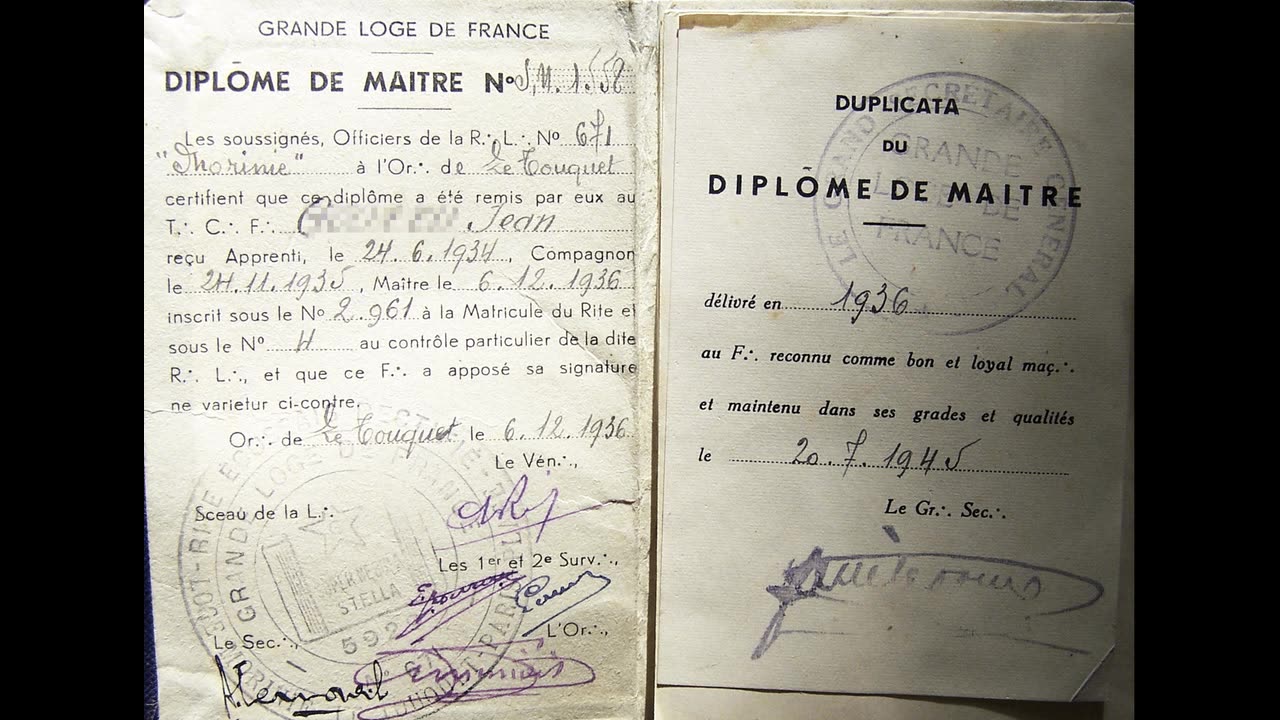 GRANDE LOGE DE FRANCE
DIPLÔME DE MAITRE No S,M. 1.558
Les soussignés, Officiers de la R∴ L∴ No 671
"Thorinie" à l'Or∴ de Le Touquet
certifient que ce diplôme a été remis par eux au
T∴ C∴ F∴ Jean
reçu Apprenti, le 24.6.1934, Compagnon
le 24.11.1935, Maître le 6.12.1936
inscrit sous le No 2.961 à la Matricule du Rite et
sous le No 4 au contrôle particulier de la dite
R∴ L∴, et que ce F∴ a apposé sa signature
ne varietur ci-contre.
Or∴ de Le Touquet le 6.12.1936
Le Vén∴,
Sceau de la L∴
Les 1er et 2e Surv∴,
STELLA
592
GRANDE LOGE DE FRANCE
Le Sec∴,
L'Or∴,
DUPLICATA
DU
DIPLÔME DE MAITRE
LE GRAND SECRETAIRE GENERAL
GRANDE
LOGE DE
FRANCE
délivré en 1936
au F∴ reconnu comme bon et loyal maç∴
et maintenu dans ses grades et qualités
le 20.7.1945
Le Gr∴ Sec∴